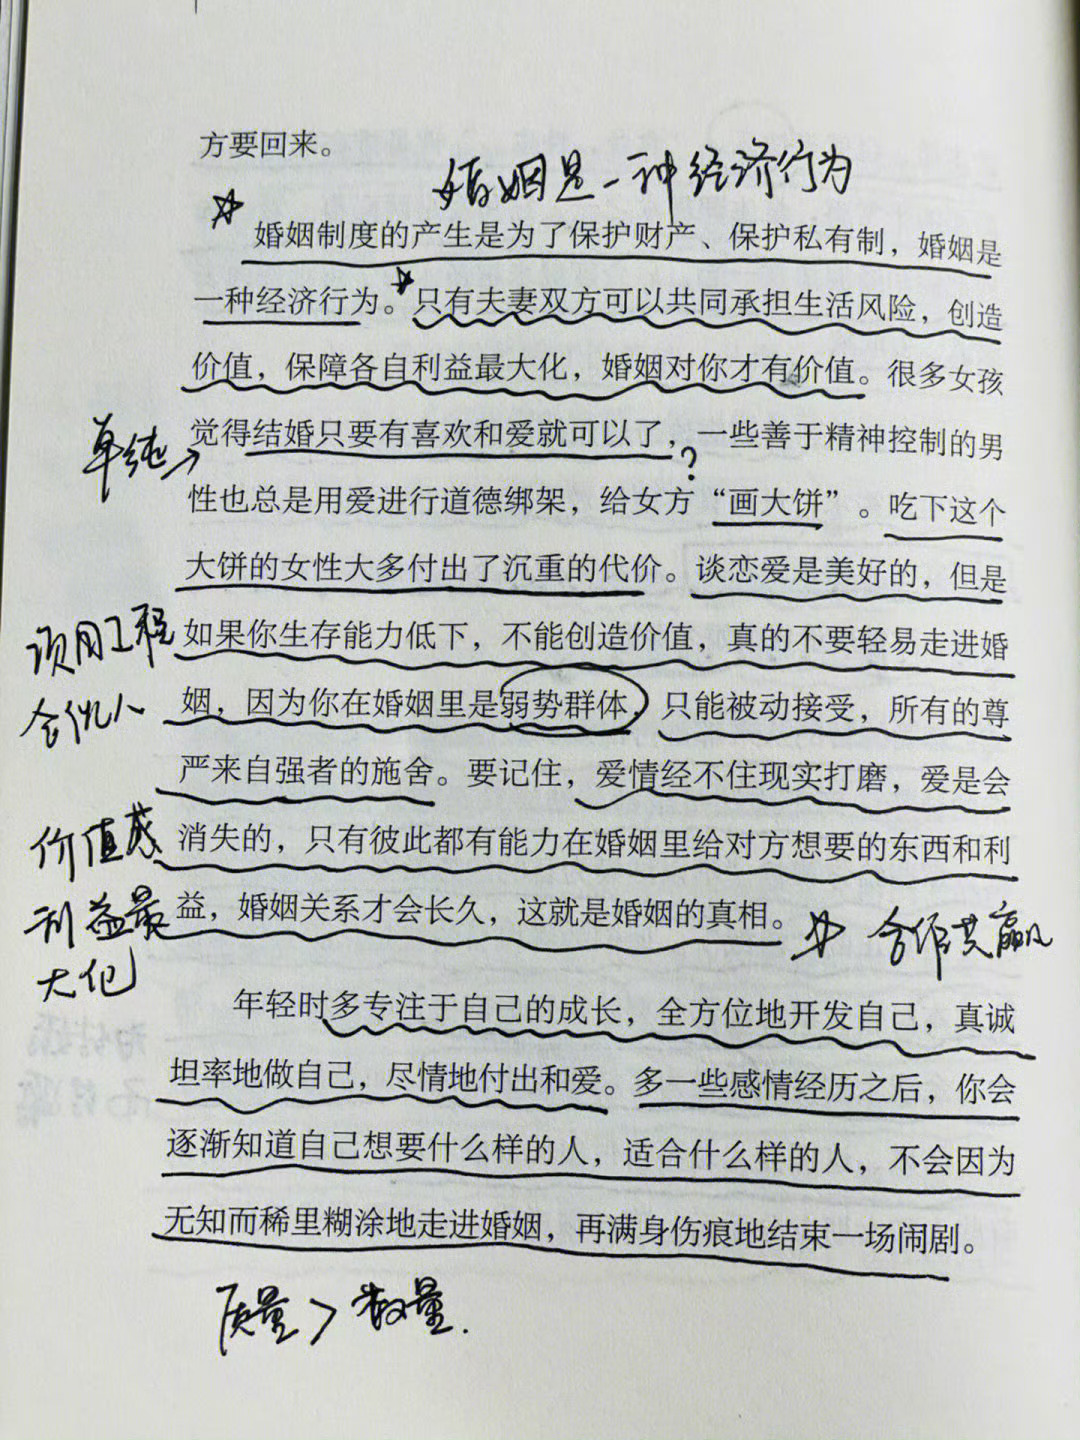 方要回来。
婚姻是一种经济行为
婚姻制度的产生是为了保护财产、保护私有制，婚姻是
一种经济行为。只有夫妻双方可以共同承担生活风险，创造
价值，保障各自利益最大化，婚姻对你才有价值。很多女孩
单纯→
觉得结婚只要有喜欢和爱就可以了，一些善于精神控制的男
?
性也总是用爱进行道德绑架，给女方“画大饼”。吃下这个
大饼的女性大多付出了沉重的代价。谈恋爱是美好的，但是
项目工程
如果你生存能力低下，不能创造价值，真的不要轻易走进婚
合伙人
姻，因为你在婚姻里是弱势群体，只能被动接受，所有的尊
严来自强者的施舍。要记住，爱情经不住现实打磨，爱是会
价值感
消失的，只有彼此都有能力在婚姻里给对方想要的东西和利
利益最
益，婚姻关系才会长久，这就是婚姻的真相。
合作共赢
大化
年轻时多专注于自己的成长，全方位地开发自己，真诚
坦率地做自己，尽情地付出和爱。多一些感情经历之后，你会
逐渐知道自己想要什么样的人，适合什么样的人，不会因为
无知而稀里糊涂地走进婚姻，再满身伤痕地结束一场闹剧。
质量>数量.